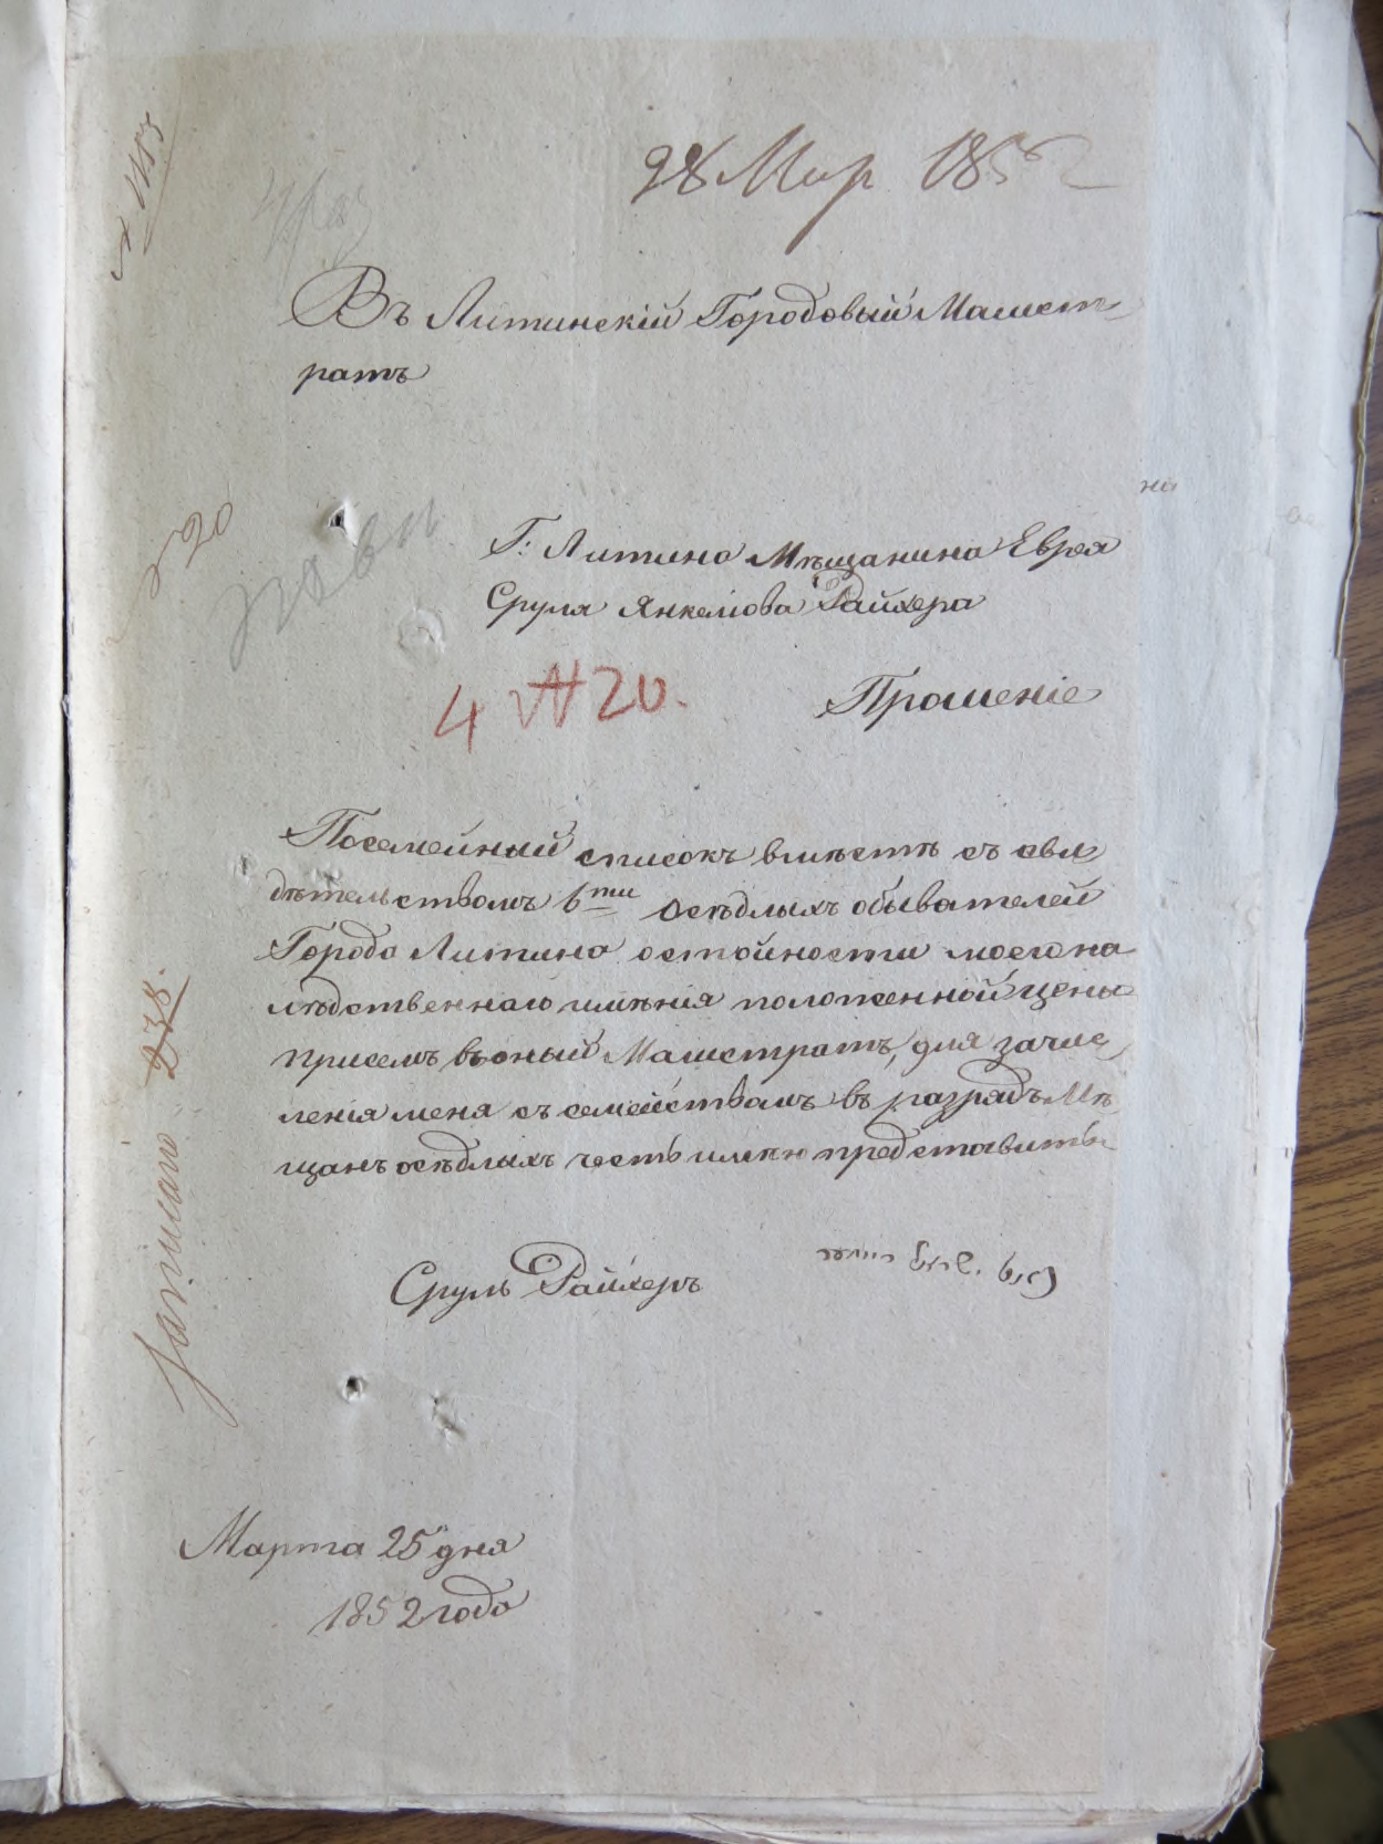 28 Мар 1852
Въ Литинскій Городовый Магист-
ратъ
Г: Литина Мѣщанина Еврея
Сруля Янкеліова Райхера
4 № 20.
Прошеніе
Посемейный списокъ вмѣстѣ съ сви
дѣтельствомъ 6ти осѣдлыхъ обывателей
Города Литина о стойности моего на
слѣдственнаго имѣнія положенной цены
присемъ въ оный Магистратъ, для зачис
ленія меня съ семействомъ въ разрядъ Мѣ
щанъ осѣдлыхъ честь имею представить
Сруль Райхеръ
Марта 25 дня
1852 года
238.